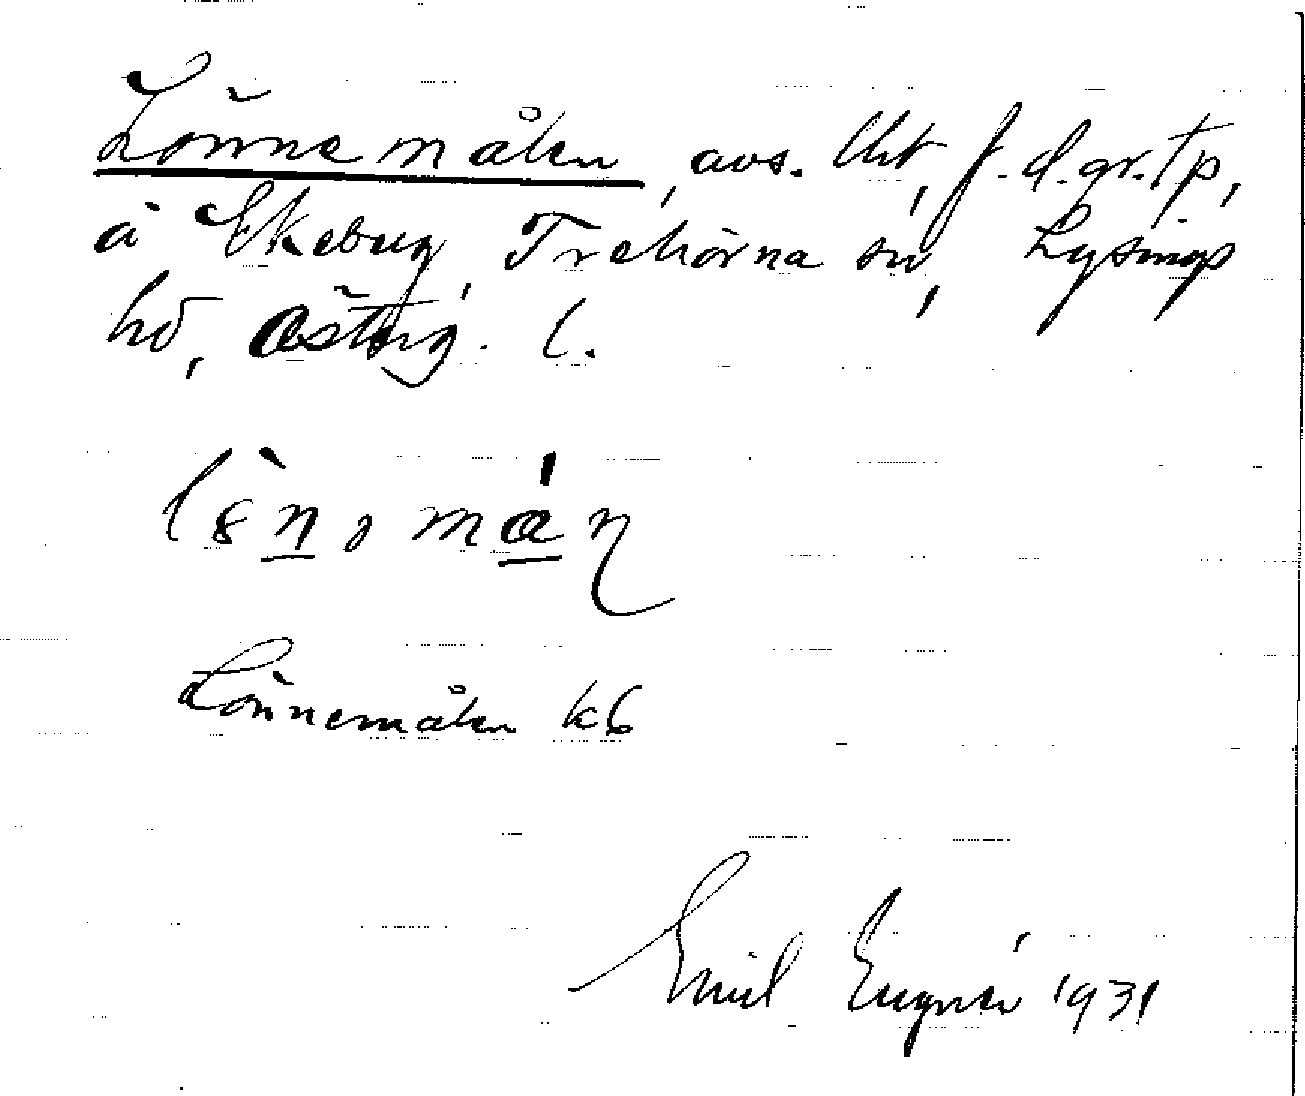 Lönnemålen, avs. lht, f.d. gr.tp,
å Ekeberg, Trehörna sn, Lysings
hd, Österg. l.
Lönnemålen k6
Emil Engnér 1931